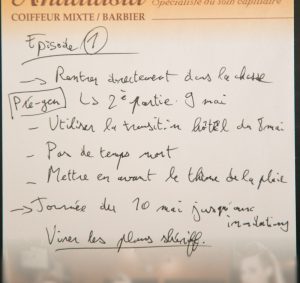 Andalusia
Spécialiste du soin capillaire
COIFFEUR MIXTE / BARBIER
Episode 1
→ Rentrer directement dans la chasse
Pré-gen ↳ 2è partie 9 mai
- Utiliser la transition hôtel du 8 mai
- Pas de temps mort
- Mettre en avant le thème de la pluie
→ Journée du 10 mai jusqu'aux
Virer les pleurs shériff.